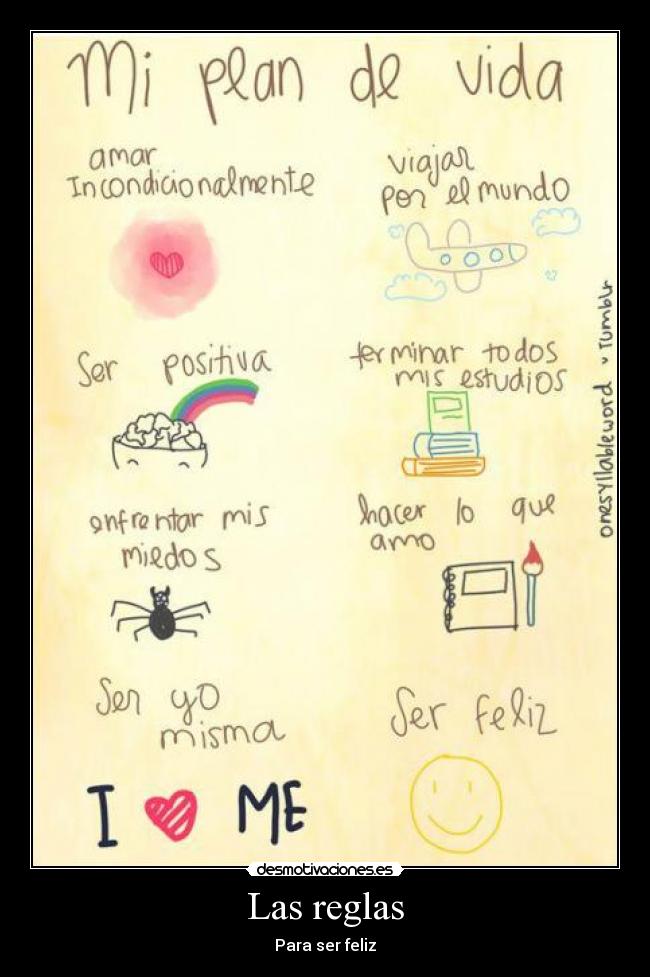 Mi plan de vida
amar
Incondicionalmente
viajar
por el mundo
Ser positiva
terminar todos
mis estudios
enfrentar mis
miedos
hacer lo que
amo
Ser yo
misma
I ❤ ME
Ser feliz
onesyllableword ♥ Tumblr
desmotivaciones.es
Las reglas
Para ser feliz